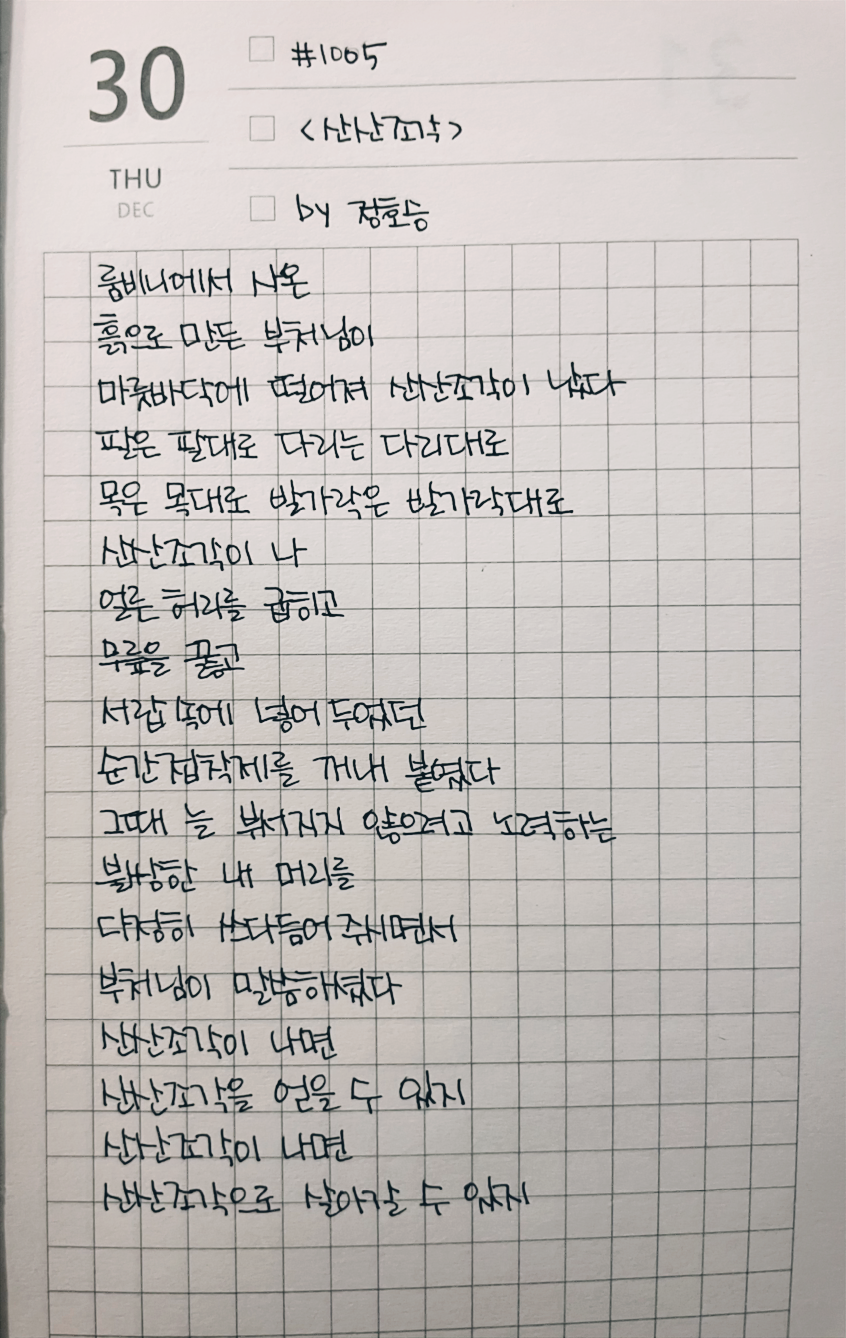 30
THU
DEC
#1005
<산산조각>
by 정호승
룸비니에서 사온
흙으로 만든 부처님이
마룻바닥에 떨어져 산산조각이 났다
팔은 팔대로 다리는 다리대로
목은 목대로 발가락은 발가락대로
산산조각이 나
얼른 허리를 굽히고
무릎을 꿇고
서랍 속에 넣어 두었던
순간접착제를 꺼내 붙였다
그때 늘 부서지지 않으려고 노력하는
불쌍한 내 머리를
다정히 쓰다듬어 주시면서
부처님이 말씀하셨다
산산조각이 나면
산산조각을 얻을 수 있지
산산조각이 나면
산산조각으로 살아갈 수 있지